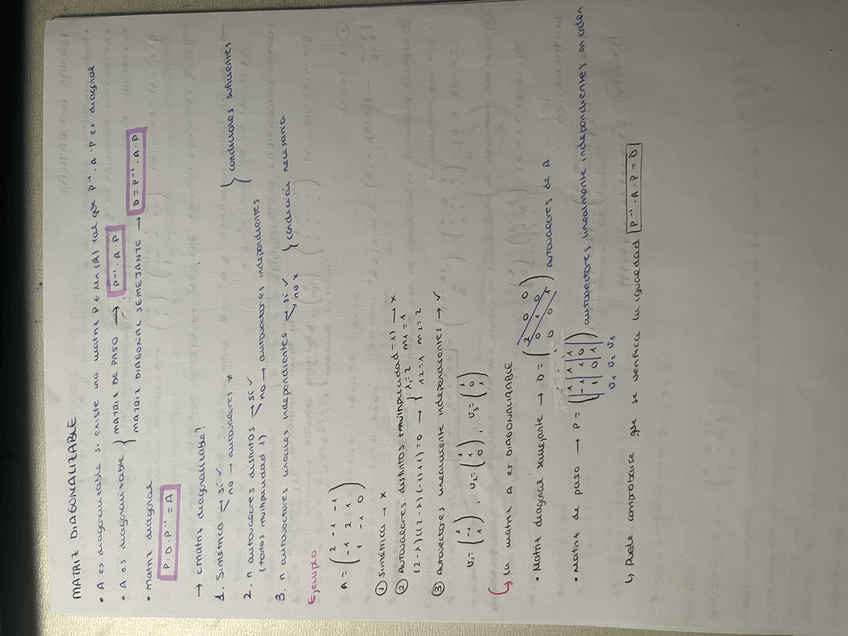 MATRIZ DIAGONALIZABLE
• A es diagonalizable si existe una matriz P ∈ Mn(R) tal que P⁻¹ · A · P es diagonal
• A es diagonalizable { MATRIZ DE PASO → P⁻¹ · A · P
• Matriz diagonal MATRIZ DIAGONAL SEMEJANTE → D = P⁻¹ · A · P
P · D · P⁻¹ = A
→ ¿Matriz diagonalizable?
1. Simétrica < sí ✓
no → autovalores *
2. n autovalores distintos < sí ✓
(todos multiplicidad 1) no → autovectores independientes
} condiciones suficientes
3. n autovectores lineales independientes < sí ✓ } condición necesaria
no x
Ejemplo
A = ( 2 -1 -1
-1 2 1
1 -1 0 )
① Simétrica → x
② Autovalores distintos (multiplicidad = 1) → x
(2-λ)((2-λ)(-λ)+1) = 0 → { λ1 = 2 m1 = 1
λ2 = 1 m2 = 2
③ Autovectores linealmente independientes → ✓
v1 = ( , v2 = (1 1 0), v3 = (1 0 1)
↳ La matriz A es DIAGONALIZABLE
• Matriz diagonal semejante → D = ( 2 0 0
0 1 0
0 0 1 ) AUTOVALORES DE A
• Matriz de paso → P = ( 1 1
1 0
1 0 1 ) autovectores linealmente independientes en orden
v1 v2 v3
↳ Puede comprobarse que se verifica la igualdad P⁻¹ · A · P = D